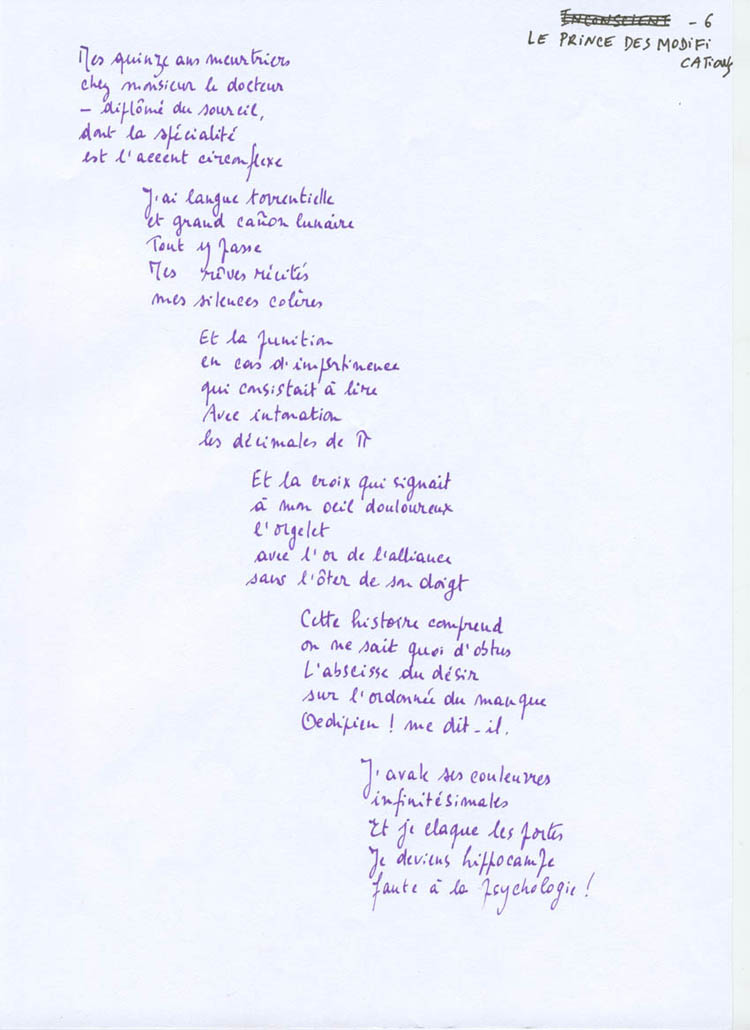 INCONSCIENT - 6
LE PRINCE DES MODIFI
CATIONS
Mes quinze ans meurtriers
chez monsieur le docteur
- diplômé du soureil,
dont la spécialité
est l'accent circonflexe
J'ai langue torrentielle
et grand cañon lunaire
Tout y passe
Mes rêves récités
mes silences colères
Et la punition
en cas d'impertinence
qui consistait à lire
Avec intonation
les décimales de π
Et la croix qui signait
à mon oeil douloureux
l'orgelet
avec l'or de l'alliance
sans l'ôter de son doigt
Cette histoire comprend
on ne sait quoi d'obtus
L'abscisse du désir
sur l'ordonnée du manque
Oedipien ! me dit-il.
J'avale ses couleuvres
infinitésimales
Et je claque les portes
Je deviens hippocampe
faute à la psychologie !